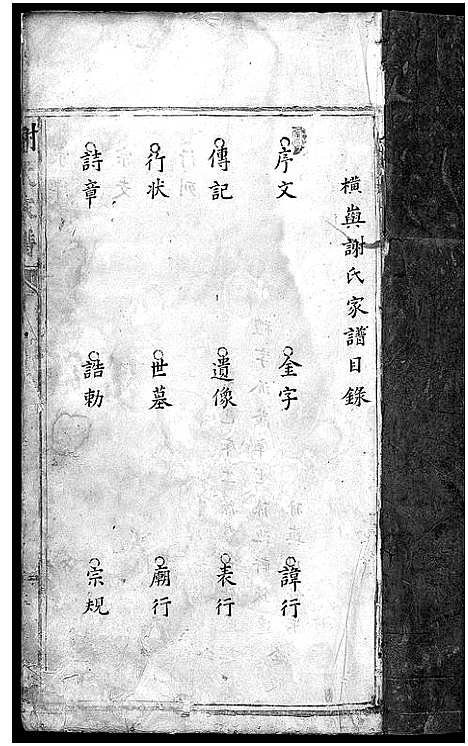 橫嶼謝氏家譜目錄
序文 全字 諱行
傳記 遺像 表行
行状 世墓 廟行
詩章 誥勅 宗規